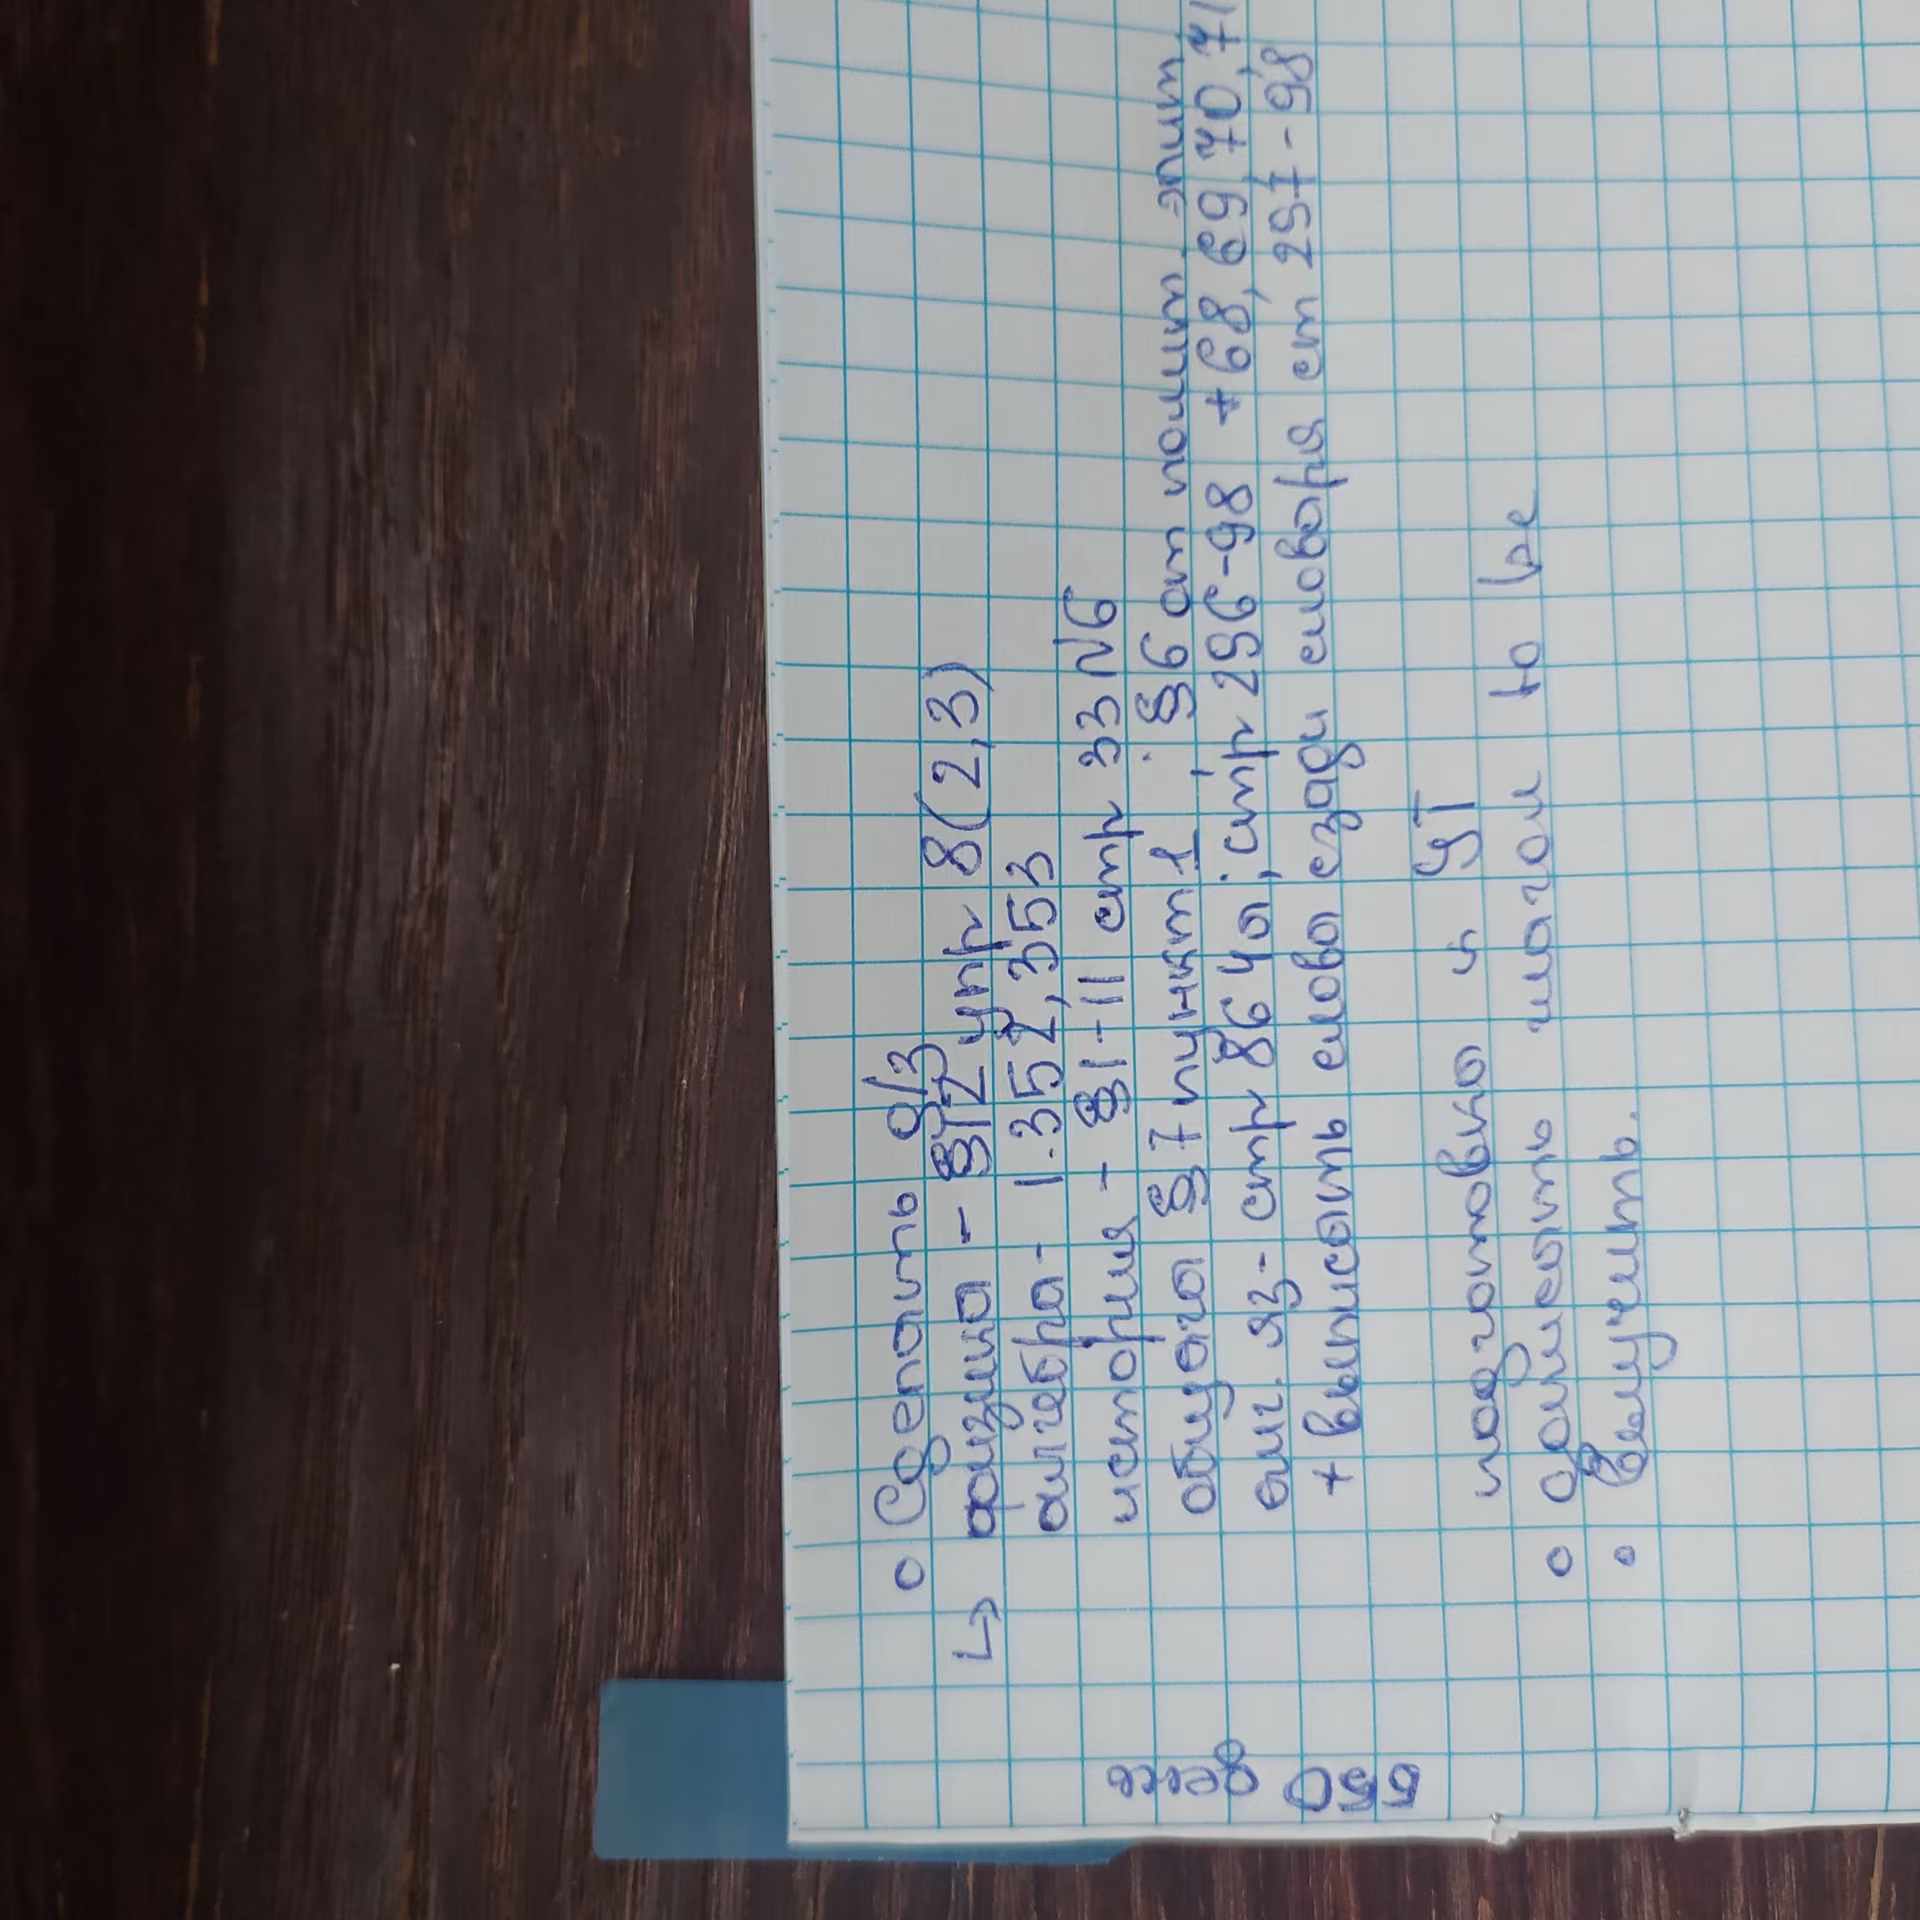 о Сделать д/з
↳ физика - §12 упр 8(2,3)
алгебра - 1.352,353
история - §1-11 стр 33 №6
общага §7 пункт 1, §6 от полит. элит
анг. яз - стр 86 4a; стр 296-98 + 68, 69, 70, 71
+ выписать слова сзади словаря ст 297-98
подготовка к УТ
о дописать глагол to be
о выучить.
550